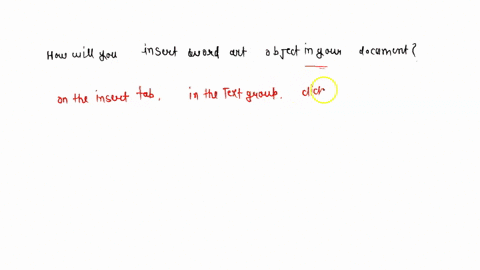 How will you insert word art object in your document?
on the insert tab, in the Text group, click